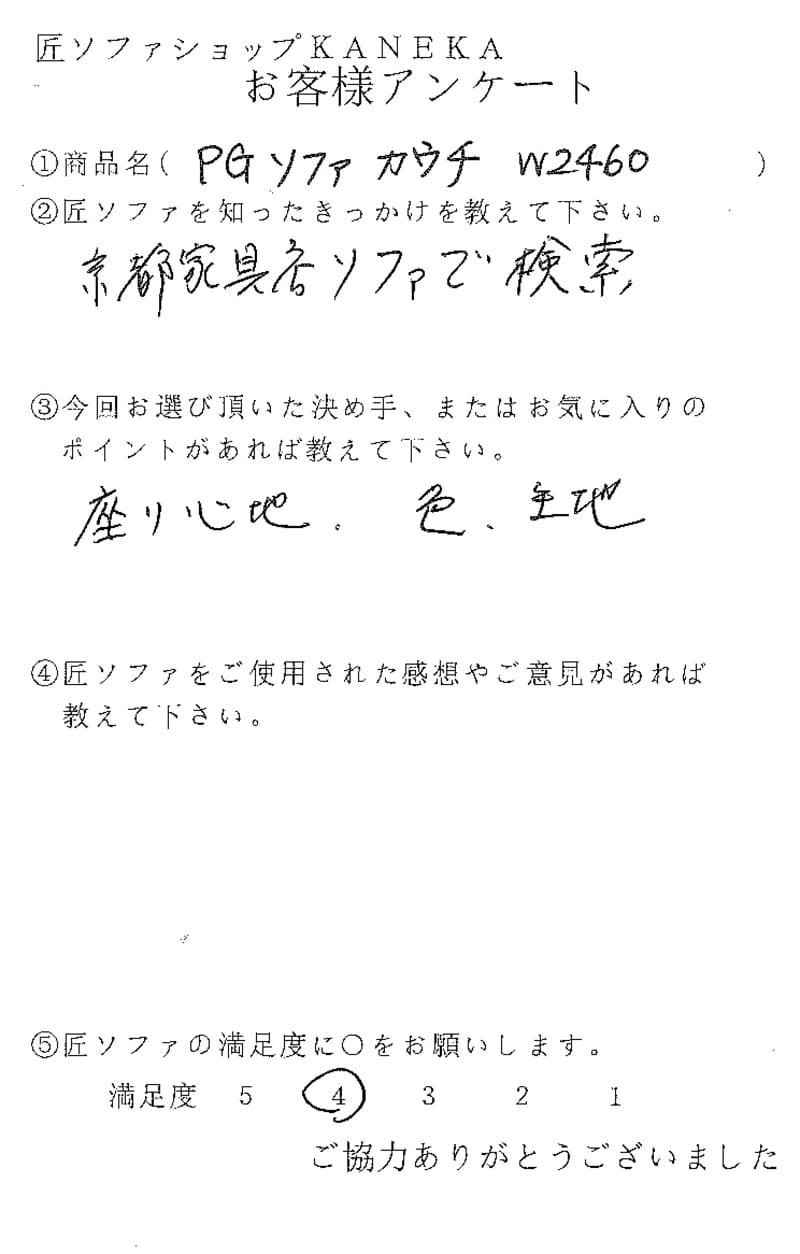 匠ソファショップKANEKA
お客様アンケート
①商品名( PGソファ カウチ W2460 )
②匠ソファを知ったきっかけを教えて下さい。
京都家具店ソファで検索
③今回お選び頂いた決め手、またはお気に入りの
ポイントがあれば教えて下さい。
座り心地、色、生地
④匠ソファをご使用された感想やご意見があれば
教えて下さい。
⑤匠ソファの満足度に〇をお願いします。
満足度 5 4 3 2 1
ご協力ありがとうございました